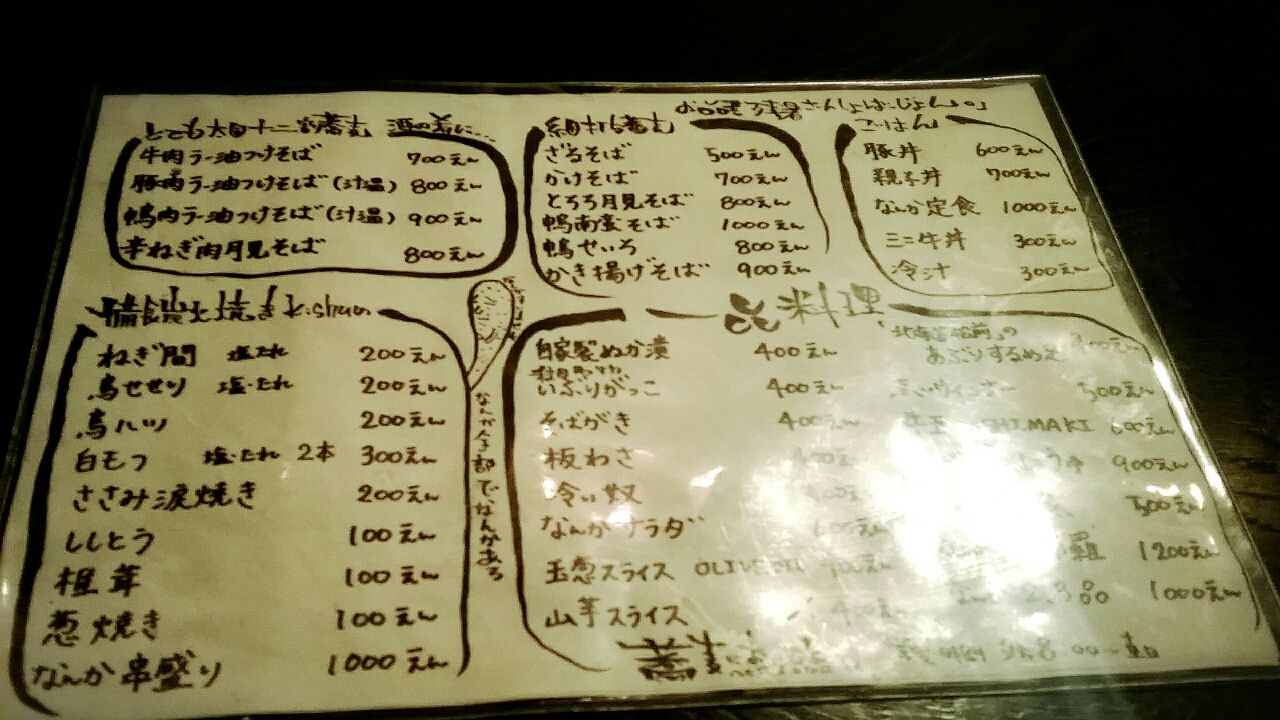 とても太目十二割蕎麦 酒の為に...
牛肉ラー油つけそば 700えん
豚肉ラー油つけそば(汁温) 800えん
鴨肉ラー油つけそば(汁温) 900えん
辛ねぎ肉月見そば 800えん
細打ち蕎麦
ざるそば 500えん
かけそば 700えん
とろろ月見そば 800えん
鴨南蛮そば 1000えん
鴨せいろ 800えん
かき揚げそば 900えん
ごはん
豚丼 600えん
親子丼 700えん
なんか定食 1000えん
ミニ牛丼 300えん
冷汁 300えん
備長炭火焼き k.shun
ねぎ間 塩たれ 200えん
鳥せせり 塩・たれ 200えん
鳥ハツ 200えん
白もつ 塩・たれ 2本 300えん
ささみ涙焼き 200えん
ししとう 100えん
椎茸 100えん
葱焼き 100えん
なんか串盛り 1000えん
なんか全部で、なんかある
一品料理
自家製ぬか漬 400えん
いぶりがっこ 400えん
そばがき 400えん
板わさ
冷い奴
なんかサラダ
玉葱スライス OLIVE
山芋スライス
あぶりするめ
500えん
600えん
900えん
500えん
1200えん
1000えん